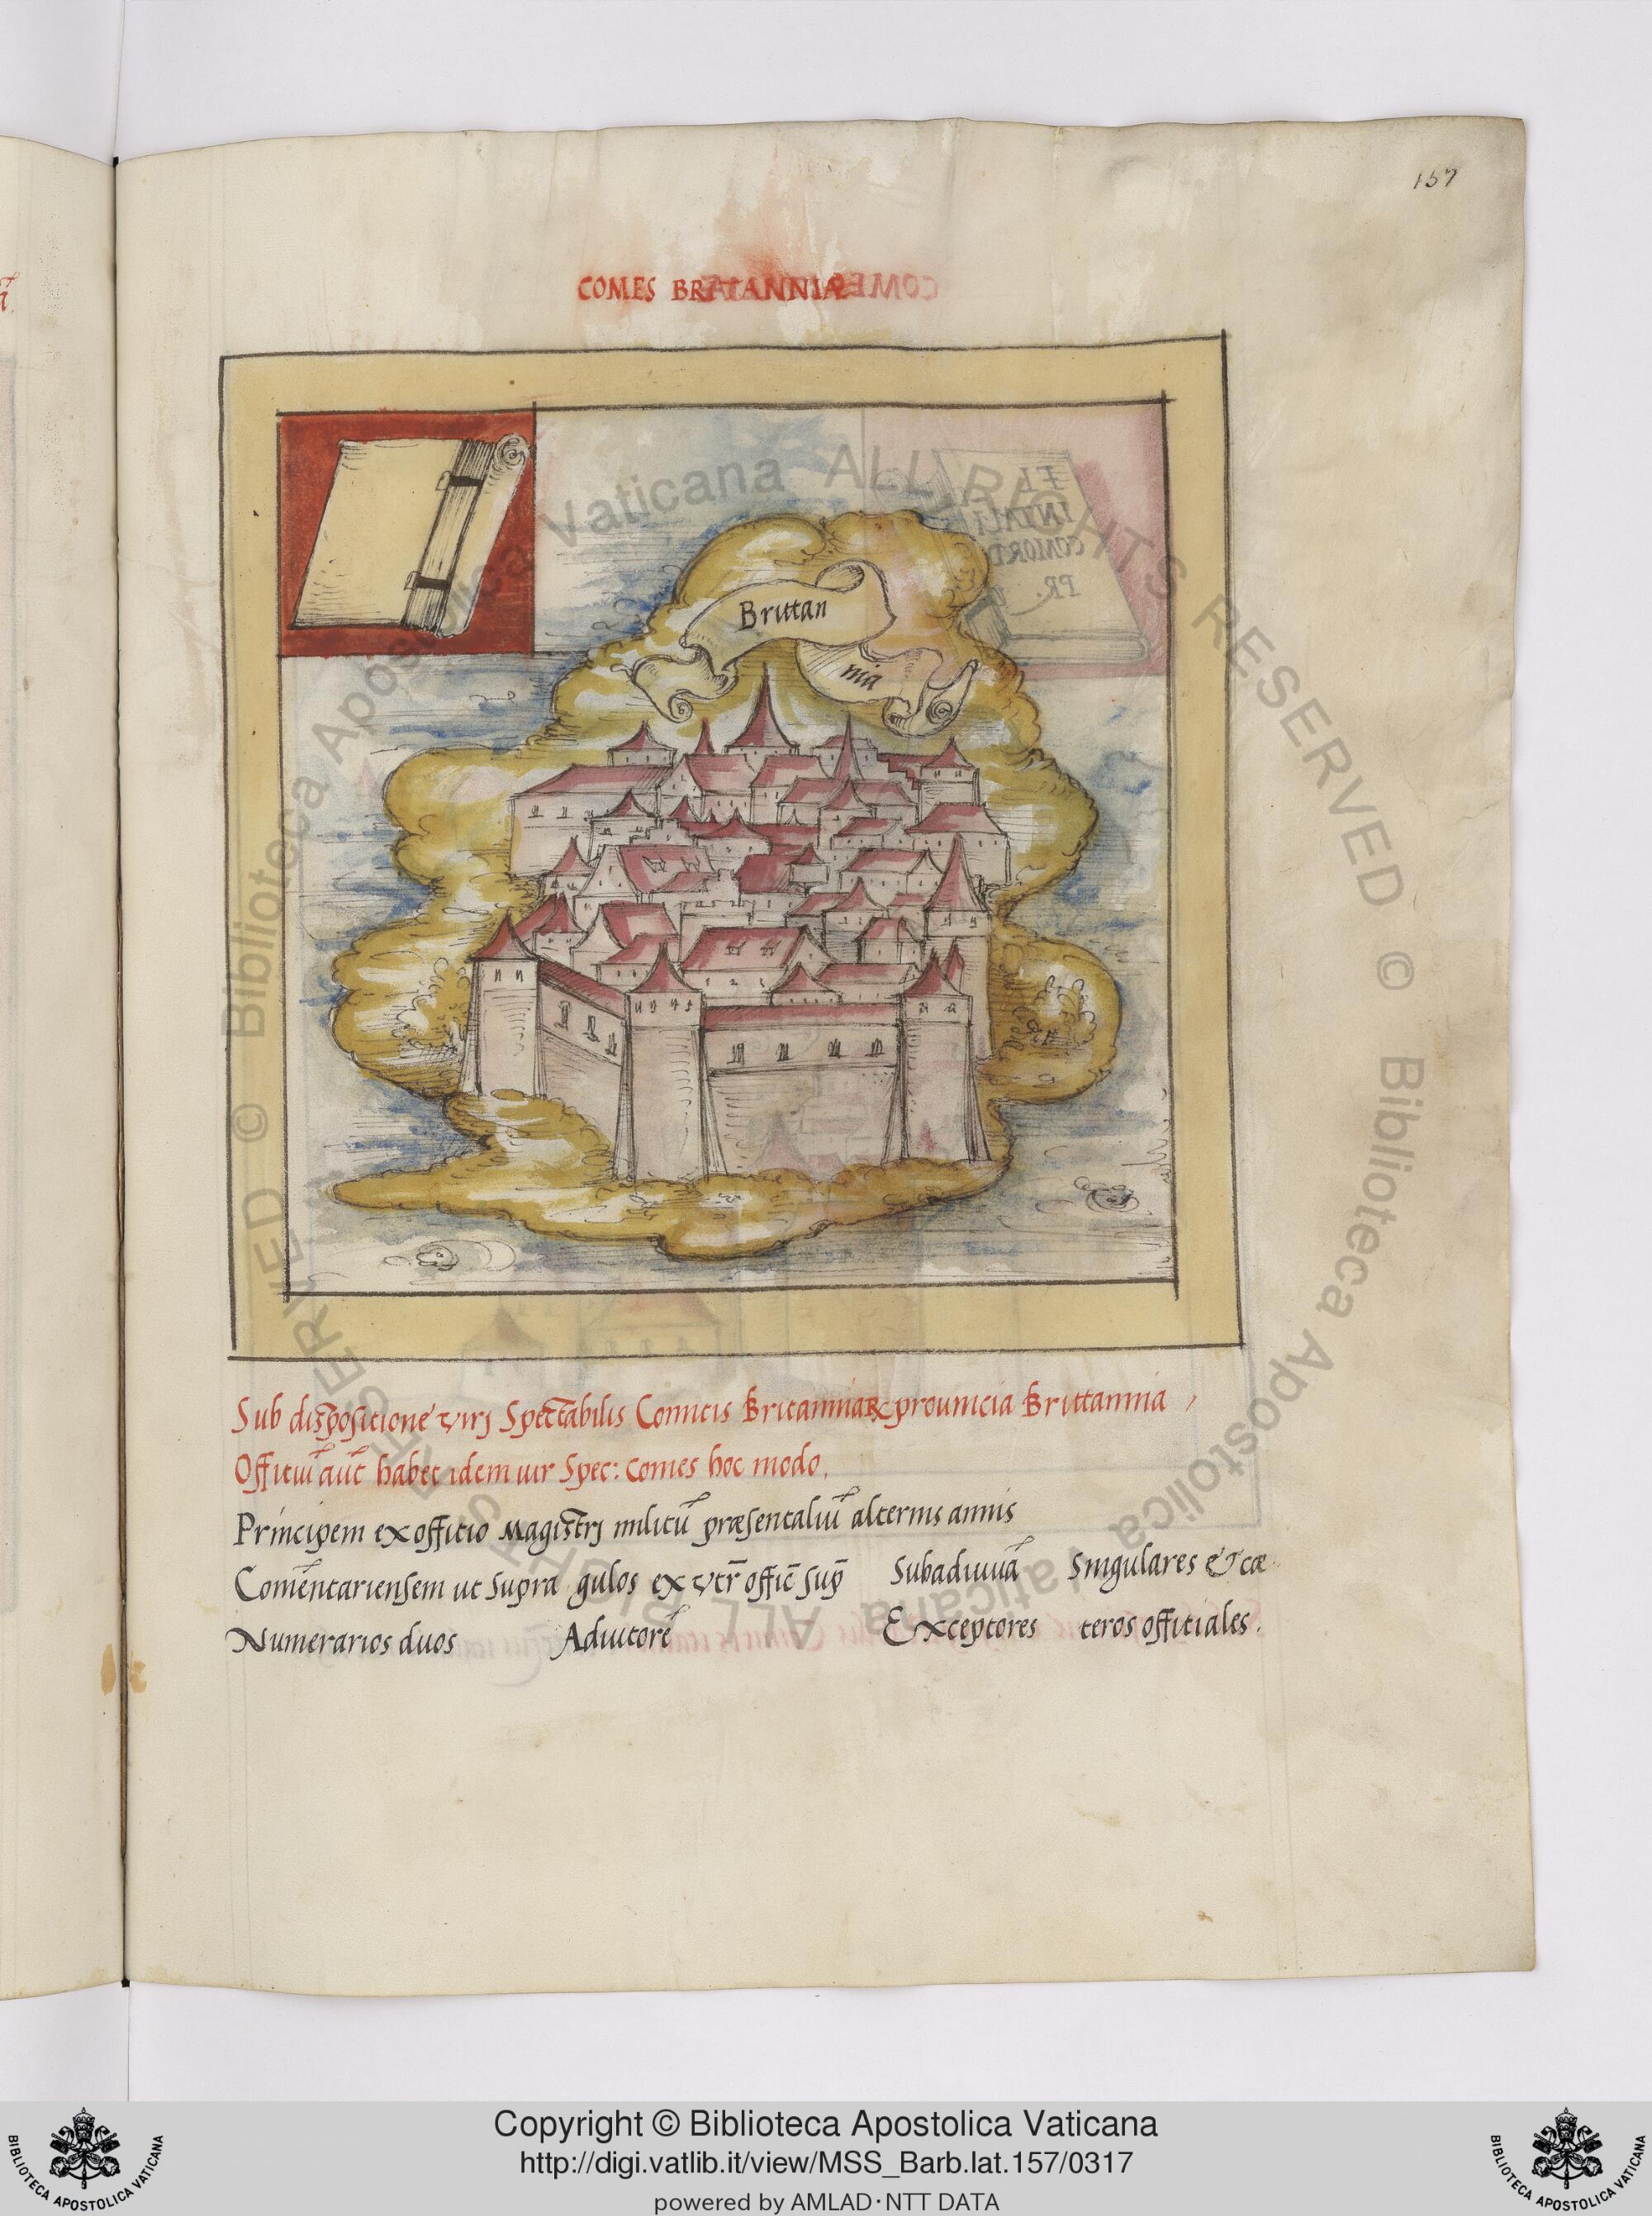 157
COMES BRITANNIÆ
Brittan
nia
Sub dispositione viri Spectabilis Comitis Britanniaꝝ prouincia Brittannia,
Offitiũ aũt habet idem uir Spec: comes hoc modo.
Principem ex offitio Magistri militũ præsentaliũ alternis annis
Comẽntariensem ut supra gulos ex vtr̃ offic̃ sup̃ Subadiuuã Singulares & cæ
Numerarios duos Adiutorẽ Exceptores teros offitiales.
© Biblioteca Apostolica Vaticana ALL RIGHTS RESERVED © Biblioteca Apostolica Vaticana ALL RIGHTS RESERVED
Copyright © Biblioteca Apostolica Vaticana
http://digi.vatlib.it/view/MSS_Barb.lat.157/0317
powered by AMLAD·NTT DATA
BIBLIOTECA APOSTOLICA VATICANA
BIBLIOTECA APOSTOLICA VATICANA